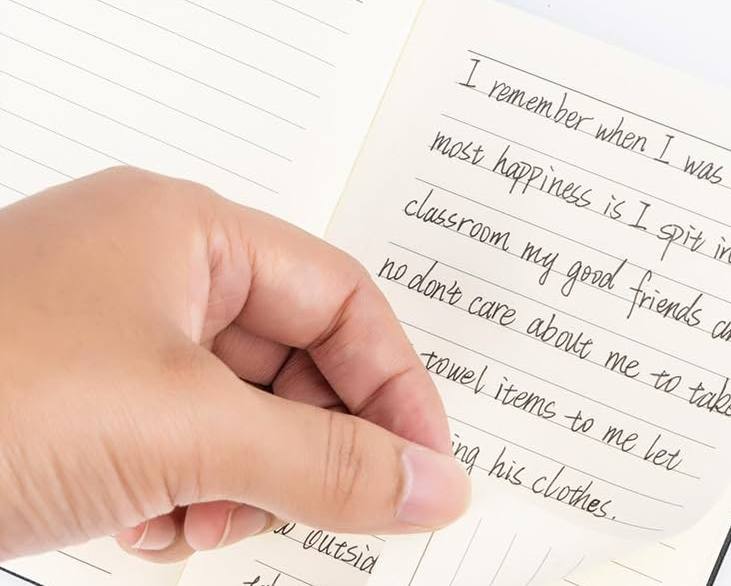 I remember when I was
most happiness is I spit in
classroom my good friends
no don't care about me to take
towel items to me let
ing his clothes.
outsid